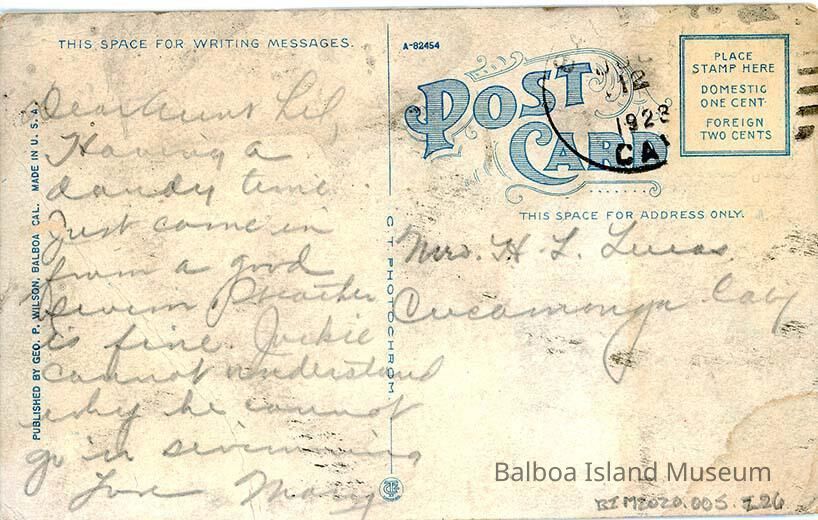 THIS SPACE FOR WRITING MESSAGES.
Dear Aunt Lil,
Having a
dandy time
Just come in
from a good
swim. Weather
is fine. Jackie
cannot understand
why he cannot
go in swimming
Love Mary
PUBLISHED BY GEO. P. WILSON, BALBOA CAL. MADE IN U.S.A.
C T PHOTOCHROM
A-82454
POST
CARD
12
1928
CA
PLACE
STAMP HERE
DOMESTIC
ONE CENT
FOREIGN
TWO CENTS
THIS SPACE FOR ADDRESS ONLY.
Mrs. H. L. Lucas
Cucamonga
Balboa Island Museum
BIM2020.005.126